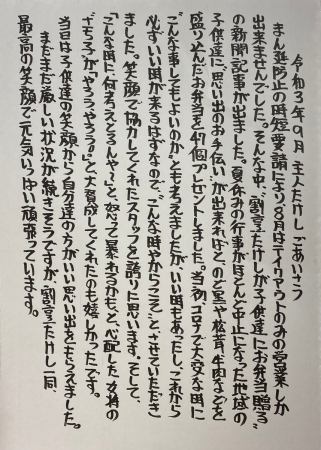 令和3年9月 主人たけしごあいさつ
まん延防止の時短要請により、8月はテイクアウトのみの営業しか
出来ませんでした。そんな中、"割烹たけしが子供達にお弁当贈る"
の新聞記事が出ました。夏休みの行事がほとんど中止になった地域の
子供達に思い出のお手伝いが出来ればと、のど黒や松茸、牛肉などを
盛り込んだお弁当を47個プレゼントしました。当初、コロナで大変な時に
こんな事してもよいのか…とも考えましたが、いい時もあったし、これから
必ずいい時が来るはずなので、"こんな時やからこそ"と、させていただき
ました。笑顔で協力してくれたスタッフを誇りに思います。そして、
「こんな時に、何考えとるんや〜」と、怒って暴れるかも、と、心配した女将の
"さち子"が、"やろう、やろう"と大賛成してくれたのも嬉しかったです。
当日は子供達の笑顔から自分達の方がいい思い出をもらえました。
まだまだ厳しい状況が続きそうですが、割烹たけし一同、
最高の笑顔で元気いっぱい頑張っています。